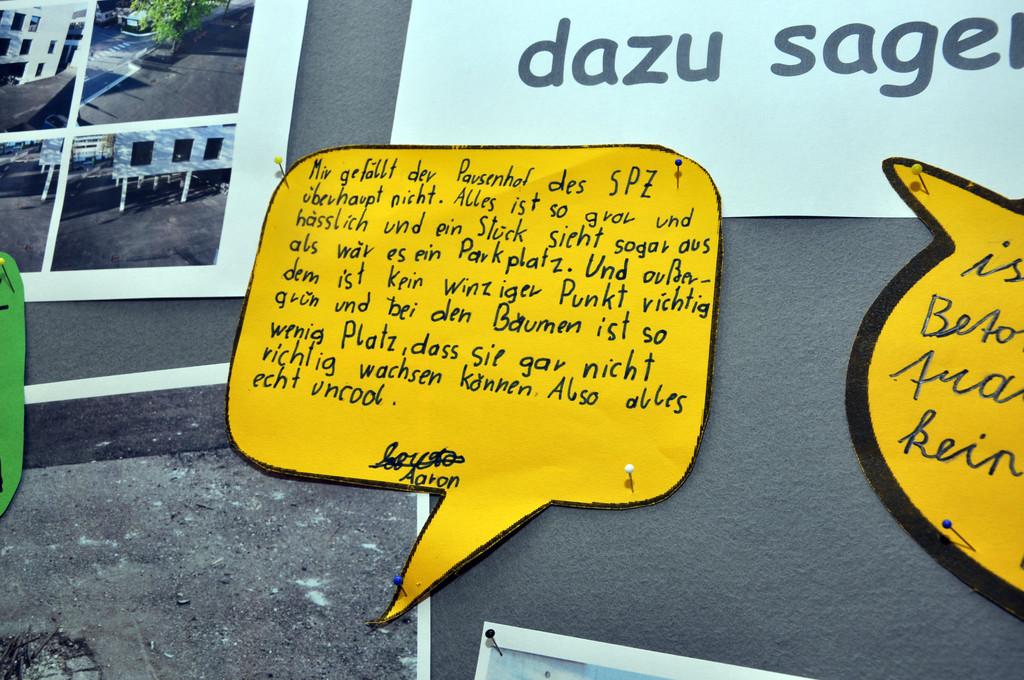 dazu sagen
Mir gefällt der Pausenhof des SPZ
überhaupt nicht. Alles ist so grau und
hässlich und ein Stück sieht sogar aus
als wär es ein Parkplatz. Und außer-
dem ist kein winziger Punkt richtig
grün und bei den Bäumen ist so
wenig Platz, dass sie gar nicht
richtig wachsen können. Also alles
echt uncool.
Aaron
is
Beto
kein